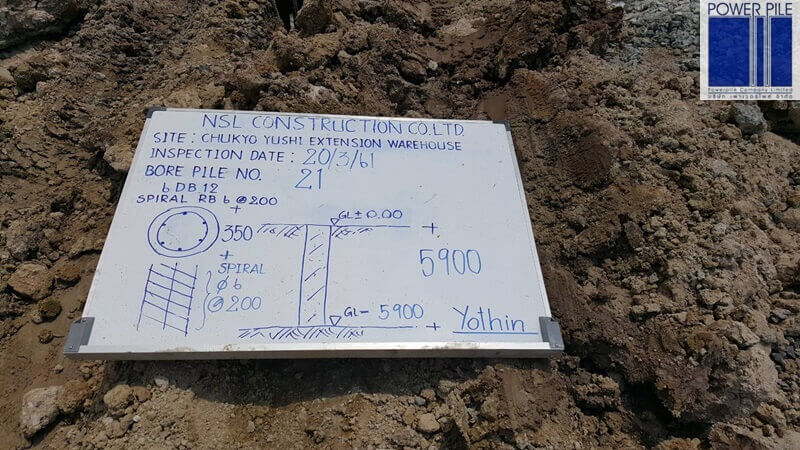 POWER PILE
Powerpile Company Limited
บริษัท เพาเวอร์ไพล์ จำกัด
NSL CONSTRUCTION CO.LTD.
SITE : CHUKYO YUSHI EXTENSION WAREHOUSE
INSPECTION DATE : 20/3/61
BORE PILE NO. 21
6 DB 12
SPIRAL RB 6 @ 200
GL ± 0.00
350
5900
SPIRAL
Ø 6
@ 200
GL - 5900
Yothin